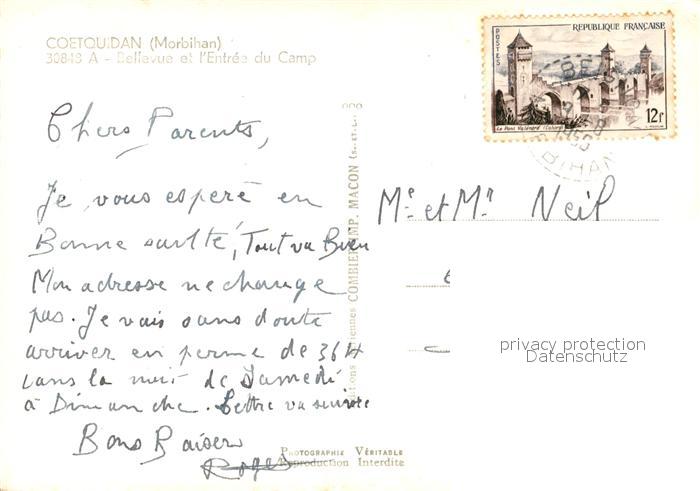 COETQUIDAN (Morbihan)
30843 A - Bellevue et l'Entrée du Camp
POSTES
REPUBLIQUE FRANÇAISE
12F
Le Pont Valentré (Cahors)
BIHAN
Chers Parents,
Je vous espère en
Bonne santé, Tout va Bien
Mon adresse ne change
pas. Je vais sans doute
arriver en perme de 36H
dans la nuit de Samedi
à Dimanche. Lettre va suivre
Bons Baisers
Roger
COMBIER IMP. MACON
Me et Mr Neil
privacy protection
Datenschutz
PHOTOGRAPHIE VÉRITABLE
Reproduction Interdite